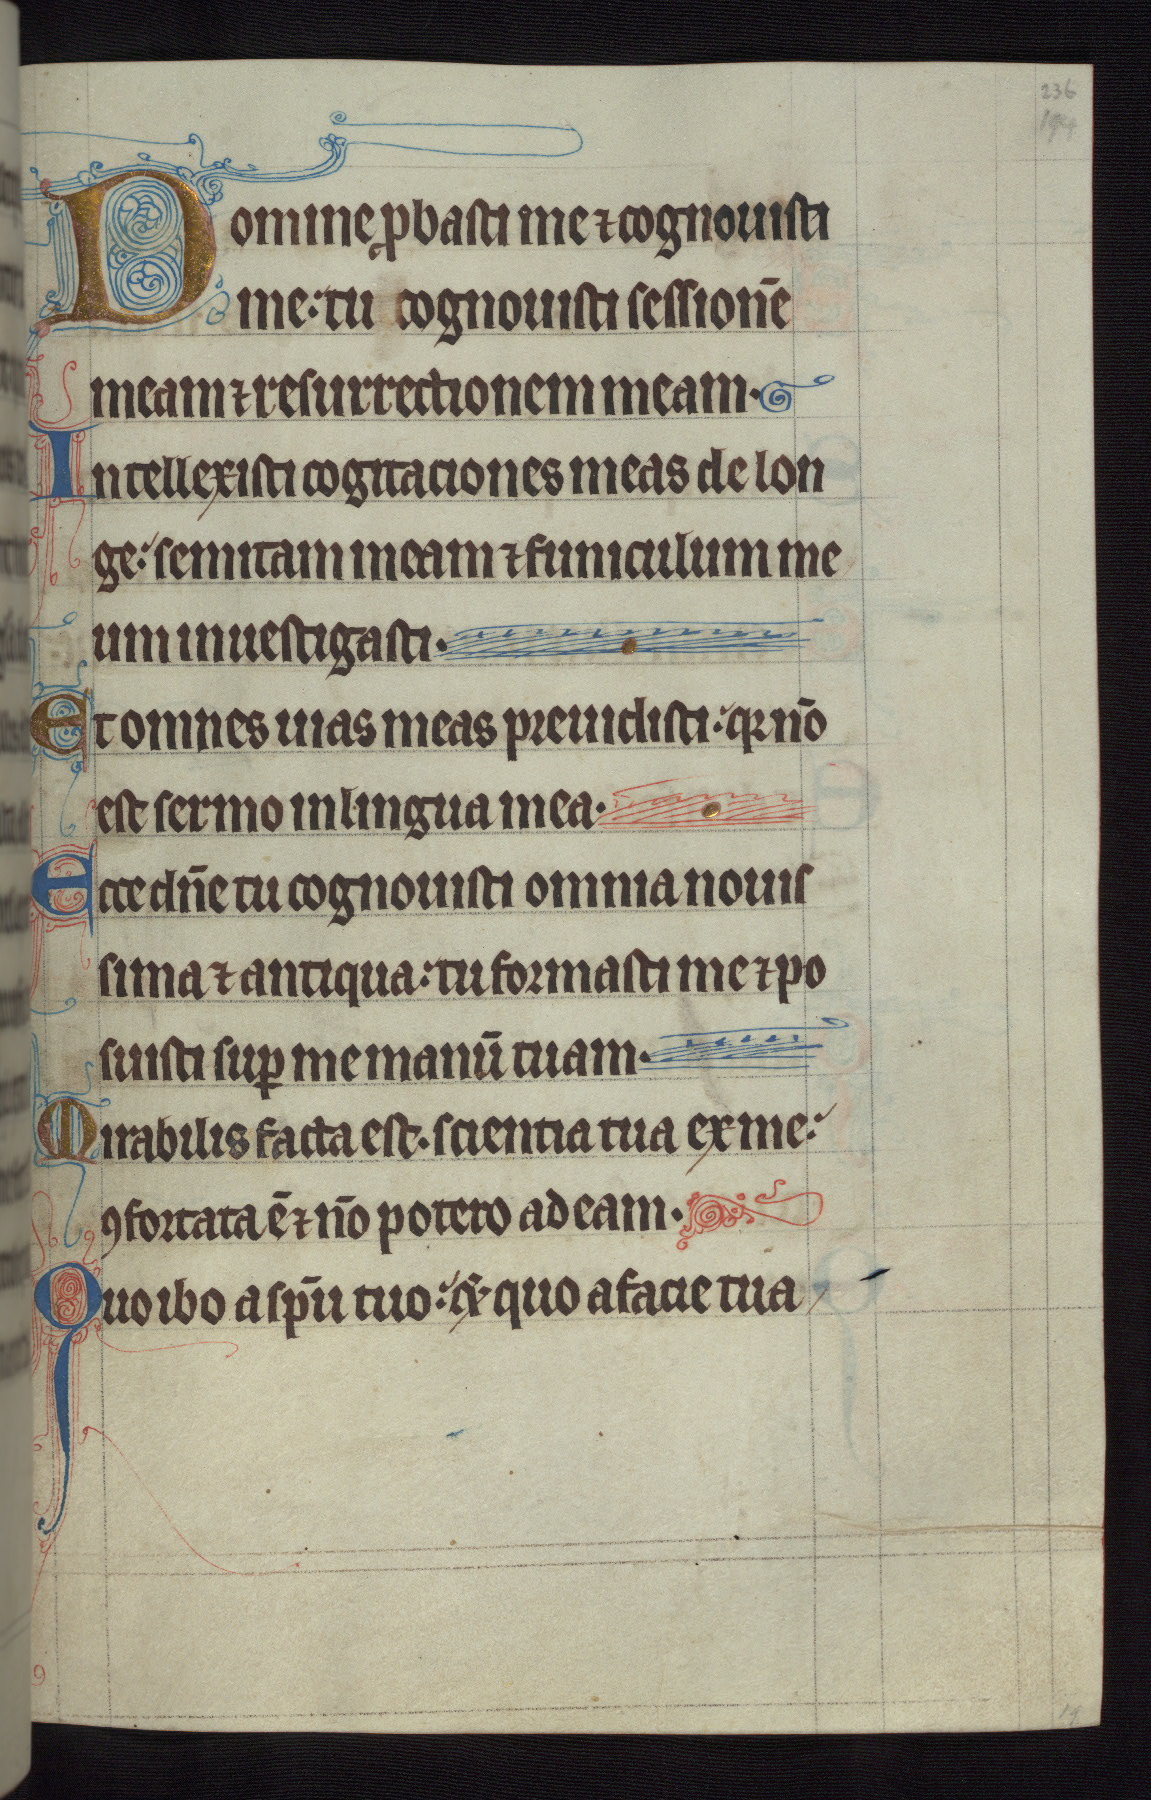 236
194
Domine ꝓbasti me ⁊ cognouisti
me: tu cognouisti sessionē
meam ⁊ resurrectionem meam.
Intellexisti cogitaciones meas de lon
ge: semitam meam ⁊ funiculum me
um inuestigasti.
Et omnes uias meas preuidisti: qꝛ nō
est sermo in lingua mea.
Ecce dn̄e tu cognouisti omnia nouis
sima ⁊ antiqua: tu formasti me ⁊ po
suisti suꝑ me manū tuam.
Mirabilis facta est. scientia tua ex me:
ꝯfortata ē ⁊ nō potero ad eam.
Quo ibo a sp̄u tuo: ⁊ quo a facie tua